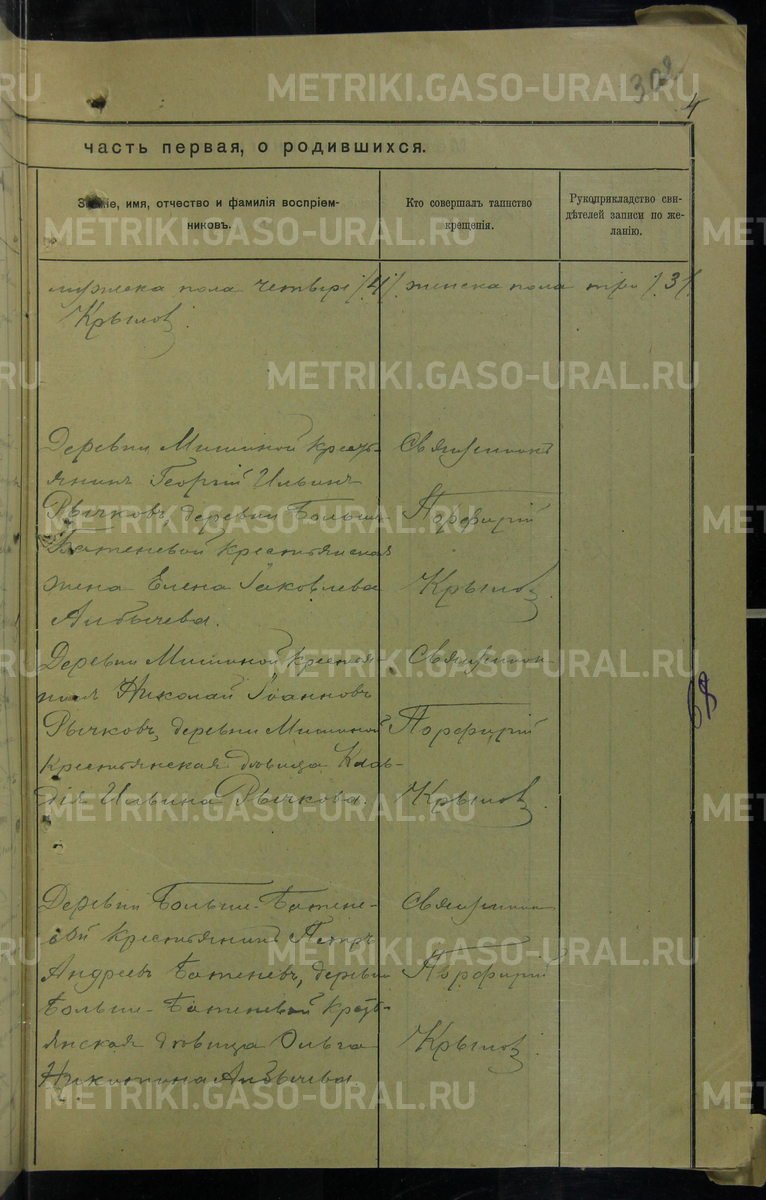 302
4
часть первая, о родившихся.
Званіе, имя, отчество и фамилія воспріем-
никовъ.
Кто совершалъ таинство
крещенія.
Рукоприкладство сви-
дѣтелей записи по же-
ланію.
мужеска пола четверо /4/. женска пола три /3/.
Крыловъ.
Деревни Мишиной кресть-
янинъ Георгій Ильинъ
Рычковъ, деревни Больше-
Баженевой крестьянская
жена Елена Іаковлева
Алтычева.
Священникъ
Порфирій
Крыловъ.
Деревни Мишиной крестья-
нинъ Николай Іоанновъ
Рычковъ, деревни Мишиной
крестьянская дѣвица Клав-
дія Ильина Рычкова.
Священник
Порфирій
Крыловъ.
68
Деревни Больше-Бажене-
вой крестьянинъ Петръ
Андреевъ Баженевъ, деревни
Больше-Баженевой кресть-
янская дѣвица Ольга
Никитина
Священник
Порфирій
Крыловъ.
METRIKI.GASO-URAL.RU